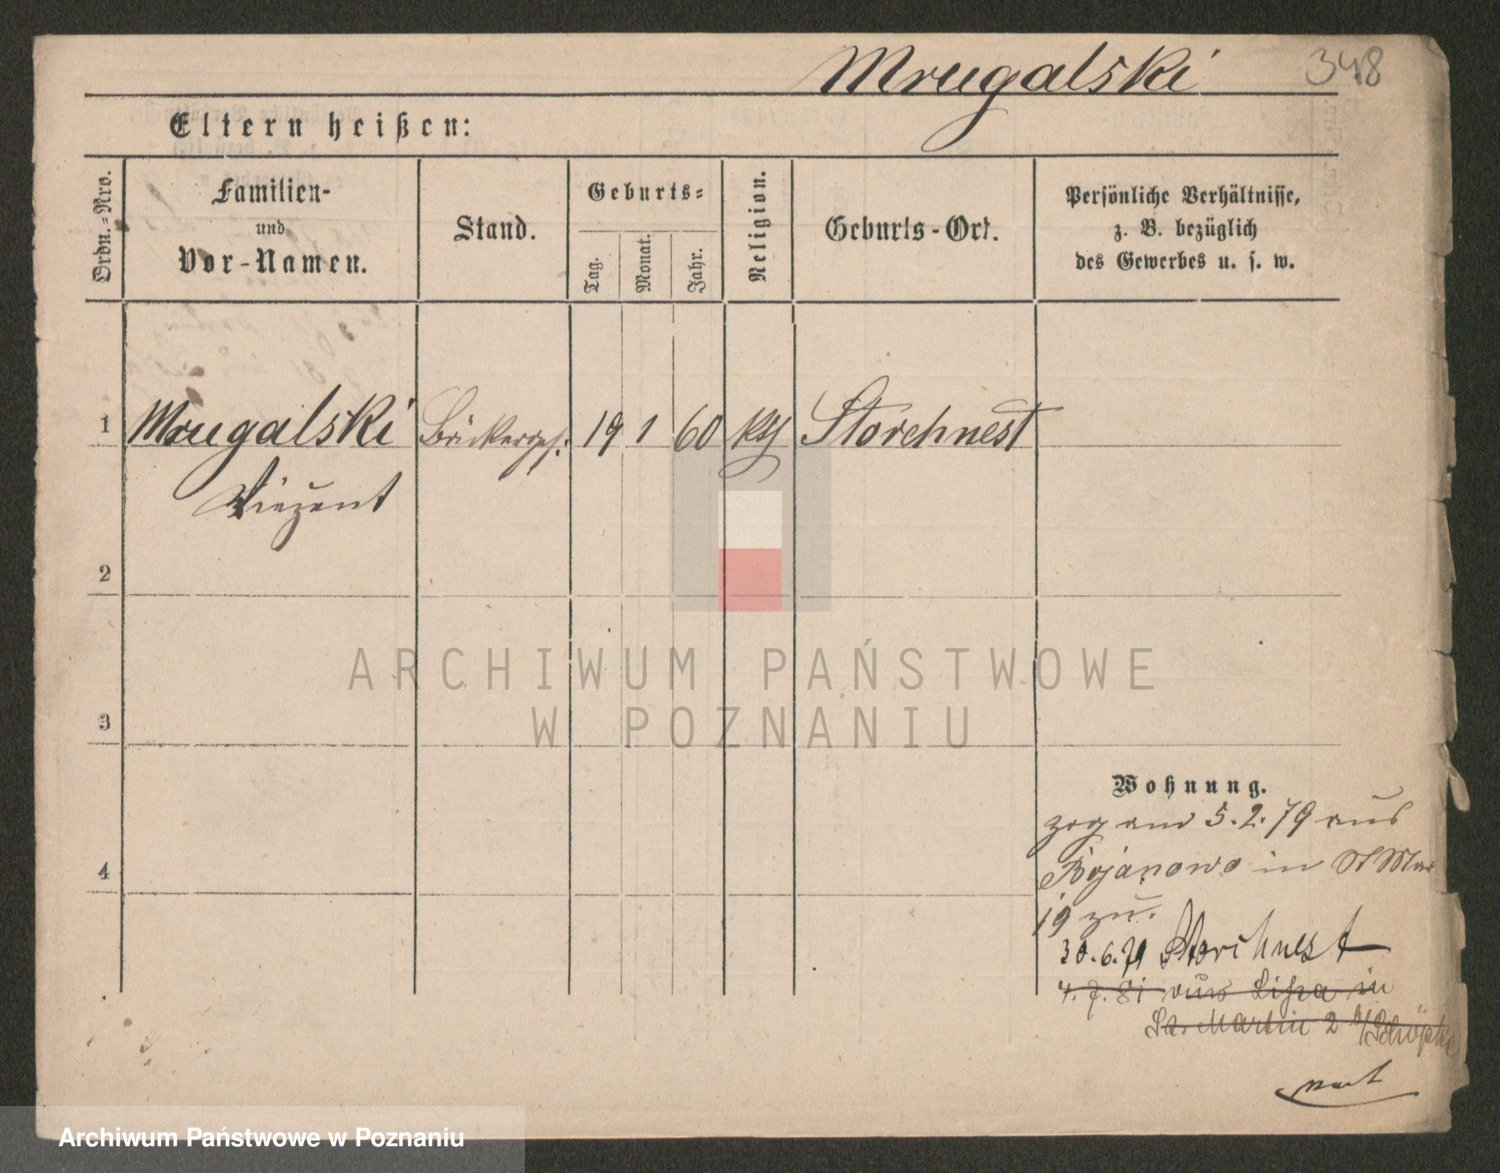 Mrugalski 348
Eltern heißen:
Ordn.-Nro.
Familien-
und
Vor-Namen.
Stand.
Geburts-
Tag.
Monat.
Jahr.
Religion.
Geburts-Ort.
Persönliche Verhältnisse,
z. B. bezüglich
des Gewerbes u. s. w.
1 Mrugalski Bäckerges. 19 1 60 kth Storchnest
Vinzent
2
3
4
ARCHIWUM PAŃSTWOWE
W POZNANIU
Wohnung.
zog am 5.2.79 aus
Bojanowo in St Mar
19 zu.
30.6.79 Storchnest
4.7.81 aus Lissa in
St. Martin 2 b/Schöpke
Archiwum Państwowe w Poznaniu